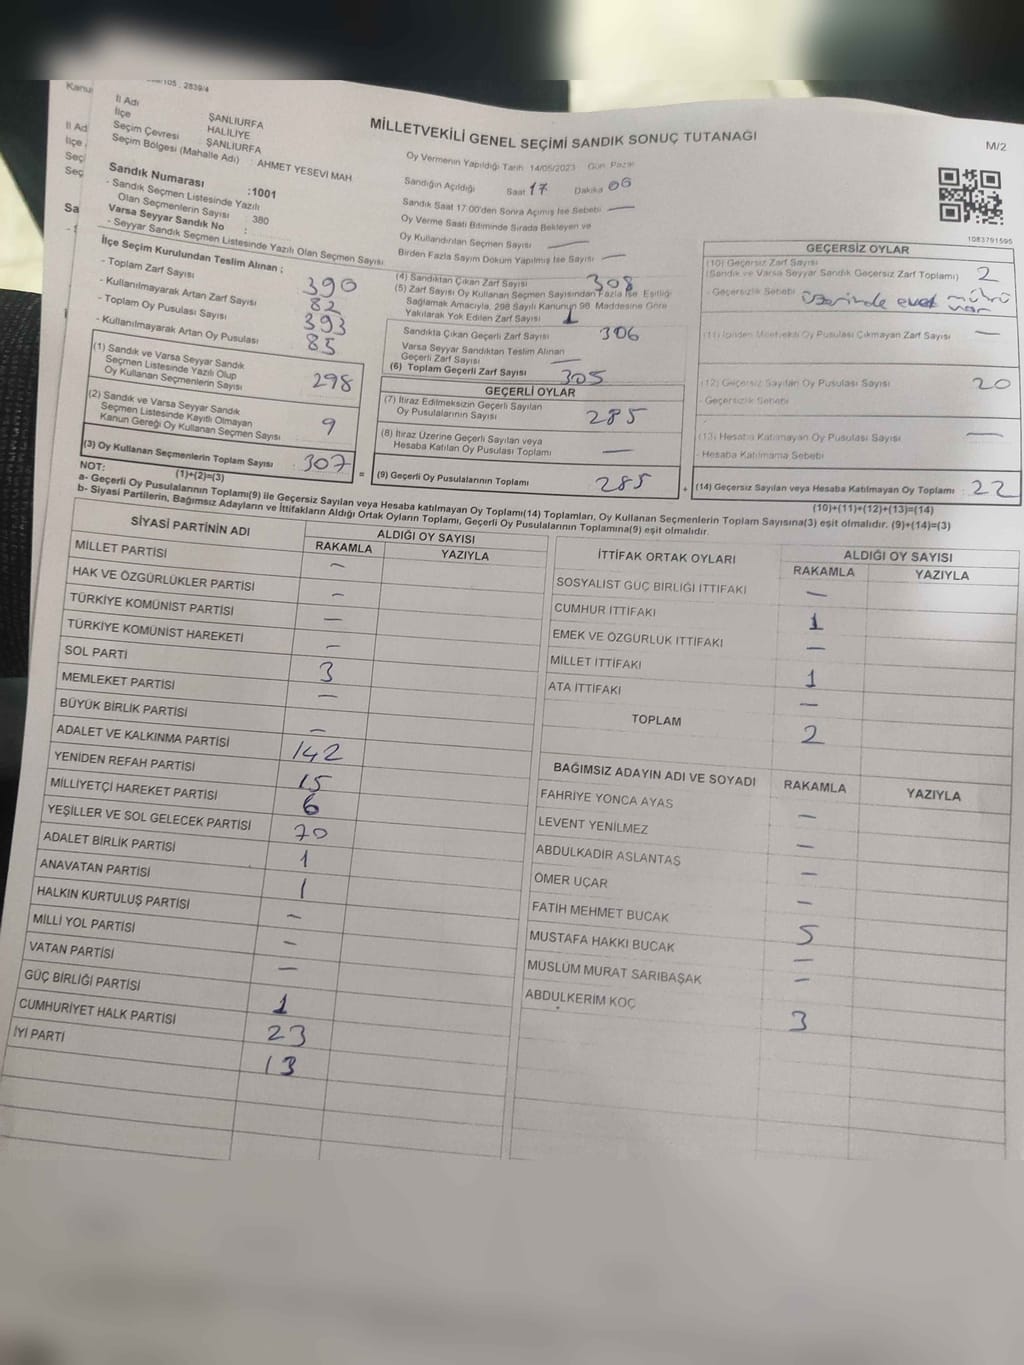 105 : 2839/4
İl Adı ŞANLIURFA
İlçe HALİLİYE
Seçim Çevresi : ŞANLIURFA
Seçim Bölgesi (Mahalle Adı) : AHMET YESEVİ MAH
MİLLETVEKİLİ GENEL SEÇİMİ SANDIK SONUÇ TUTANAĞI
M/2
Sandık Numarası :1001
- Sandık Seçmen Listesinde Yazılı
Olan Seçmenlerin Sayısı : 380
Varsa Seyyar Sandık No :
- Seyyar Sandık Seçmen Listesinde Yazılı Olan Seçmen Sayısı
Oy Vermenin Yapıldığı Tarih 14/05/2023 Gün Pazar
Sandığın Açıldığı Saat 17 Dakika 06
Sandık Saat 17:00'den Sonra Açımış İse Sebebi —
Oy Verme Saati Bitiminde Sırada Bekleyen ve
Oy Kullandırılan Seçmen Sayısı —
Birden Fazla Sayım Döküm Yapılmış İse Sayısı —
1083791595
İlçe Seçim Kurulundan Teslim Alınan ;
- Toplam Zarf Sayısı 390
- Kullanılmayarak Artan Zarf Sayısı 82
- Toplam Oy Pusulası Sayısı 393
- Kullanılmayarak Artan Oy Pusulası 85
(1) Sandık ve Varsa Seyyar Sandık
Seçmen Listesinde Yazılı Olup
Oy Kullanan Seçmenlerin Sayısı 298
(2) Sandık ve Varsa Seyyar Sandık
Seçmen Listesinde Kayıtlı Olmayan
Kanun Gereği Oy Kullanan Seçmen Sayısı 9
(3) Oy Kullanan Seçmenlerin Toplam Sayısı : 307
(1)+(2)=(3)
(4) Sandıktan Çıkan Zarf Sayısı 308
(5) Zarf Sayısı Oy Kullanan Seçmen Sayısından Fazla İse, Eşitliği
Sağlamak Amacıyla, 298 Sayılı Kanunun 98. Maddesine Göre
Yakılarak Yok Edilen Zarf Sayısı 1
Sandıkta Çıkan Geçerli Zarf Sayısı 306
Varsa Seyyar Sandıktan Teslim Alınan
Geçerli Zarf Sayısı —
(6) Toplam Geçerli Zarf Sayısı 305
GEÇERLİ OYLAR
(7) İtiraz Edilmeksizin Geçerli Sayılan
Oy Pusulalarının Sayısı 285
(8) İtiraz Üzerine Geçerli Sayılan veya
Hesaba Katılan Oy Pusulası Toplamı —
= (9) Geçerli Oy Pusulalarının Toplamı 285
GEÇERSİZ OYLAR
(10) Geçersiz Zarf Sayısı
(Sandık ve Varsa Seyyar Sandık Geçersiz Zarf Toplamı) 2
- Geçersizlik Sebebi üzerinde evet mührü
var
(11) İçinden Milletvekili Oy Pusulası Çıkmayan Zarf Sayısı —
(12) Geçersiz Sayılan Oy Pusulası Sayısı 20
- Geçersizlik Sebebi
(13) Hesaba Katılmayan Oy Pusulası Sayısı —
- Hesaba Katılmama Sebebi
+ (14) Geçersiz Sayılan veya Hesaba Katılmayan Oy Toplamı : 22
(10)+(11)+(12)+(13)=(14)
NOT:
a- Geçerli Oy Pusulalarının Toplamı(9) ile Geçersiz Sayılan veya Hesaba katılmayan Oy Toplamı(14) Toplamları, Oy Kullanan Seçmenlerin Toplam Sayısına(3) eşit olmalıdır. (9)+(14)=(3)
b- Siyasi Partilerin, Bağımsız Adayların ve İttifakların Aldığı Ortak Oyların Toplamı, Geçerli Oy Pusulalarının Toplamına(9) eşit olmalıdır.
SİYASİ PARTİNİN ADI ALDIĞI OY SAYISI
RAKAMLA YAZIYLA
MİLLET PARTİSİ —
HAK VE ÖZGÜRLÜKLER PARTİSİ —
TÜRKİYE KOMÜNİST PARTİSİ —
TÜRKİYE KOMÜNİST HAREKETİ —
SOL PARTİ 3
MEMLEKET PARTİSİ —
BÜYÜK BİRLİK PARTİSİ —
ADALET VE KALKINMA PARTİSİ 142
YENİDEN REFAH PARTİSİ 15
MİLLİYETÇİ HAREKET PARTİSİ 6
YEŞİLLER VE SOL GELECEK PARTİSİ 70
ADALET BİRLİK PARTİSİ 1
ANAVATAN PARTİSİ 1
HALKIN KURTULUŞ PARTİSİ —
MİLLİ YOL PARTİSİ —
VATAN PARTİSİ —
GÜÇ BİRLİĞİ PARTİSİ 1
CUMHURİYET HALK PARTİSİ 23
İYİ PARTİ 13
İTTİFAK ORTAK OYLARI ALDIĞI OY SAYISI
RAKAMLA YAZIYLA
SOSYALİST GÜÇ BİRLİĞİ İTTİFAKI —
CUMHUR İTTİFAKI 1
EMEK VE ÖZGÜRLÜK İTTİFAKI —
MİLLET İTTİFAKI 1
ATA İTTİFAKI —
TOPLAM 2
BAĞIMSIZ ADAYIN ADI VE SOYADI RAKAMLA YAZIYLA
FAHRİYE YONCA AYAS —
LEVENT YENİLMEZ —
ABDULKADİR ASLANTAŞ —
ÖMER UÇAR —
FATİH MEHMET BUCAK 5
MUSTAFA HAKKI BUCAK —
MÜSLÜM MURAT SARIBAŞAK —
ABDULKERİM KOÇ 3